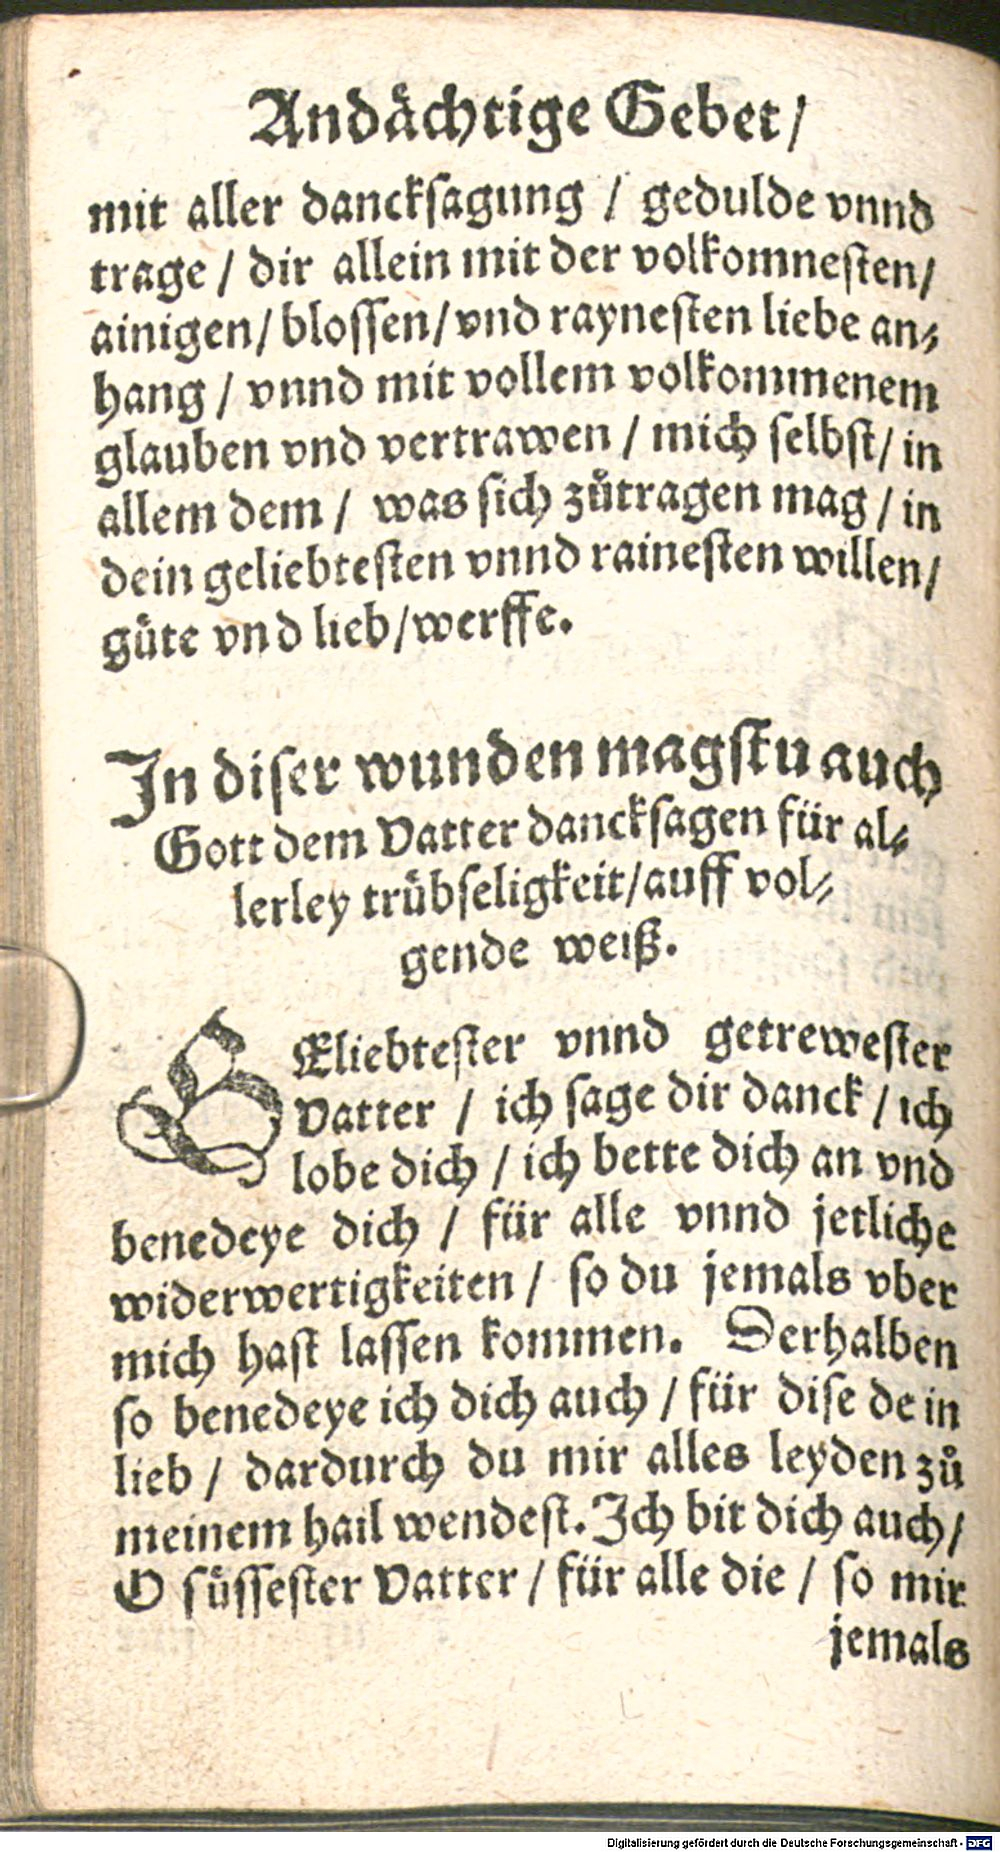 Andächtige Gebet/
mit aller dancksagung / gedulde vnnd
trage / dir allein mit der volkomnesten/
ainigen/ blossen/ vnd raynesten liebe an⸗
hang / vnnd mit vollem volkommenem
glauben vnd vertrawen / mich selbst/ in
allem dem / was sich zůtragen mag / in
dein geliebtesten vnnd rainesten willen/
güte vnd lieb/werffe.
In diser wunden magstu auch
Gott dem Vatter dancksagen für al⸗
lerley trübseligkeit/auff vol⸗
gende weiß.
GEliebtester vnnd getrewester
Vatter / ich sage dir danck / ich
lobe dich / ich bette dich an vnd
benedeye dich / für alle vnnd jetliche
widerwertigkeiten / so du jemals vber
mich hast lassen kommen. Derhalben
so benedeye ich dich auch / für dise dein
lieb / dardurch du mir alles leyden zů
meinem hail wendest. Ich bit dich auch/
O süssester Vatter / für alle die / so mir
jemals
Digitalisierung gefördert durch die Deutsche Forschungsgemeinschaft - DFG